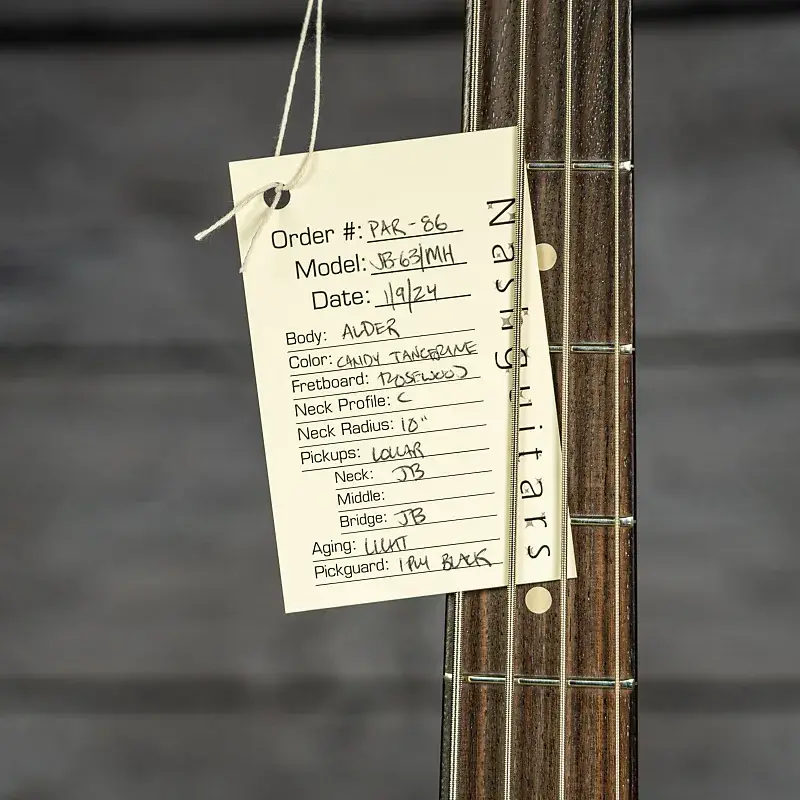 Order #: PAR-86
Model: JB-63/MH
Date: 1/9/24
Body: ALDER
Color: CANDY TANGERINE
Fretboard: ROSEWOOD
Neck Profile: C
Neck Radius: 10"
Pickups: LOLLAR
Neck: JB
Middle:
Bridge: JB
Aging: LIGHT
Pickguard: 1 PLY BLACK
Nashguitars